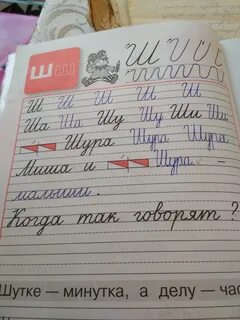 Шш Ш И И
Ш Ш Ш Ш Ш
Ша Ша Шу Шу Ши Ши
Шура Шура Шура
Миша и Шура. –
малыши.
Когда так говорят?
Шутке — минутка, а делу — час